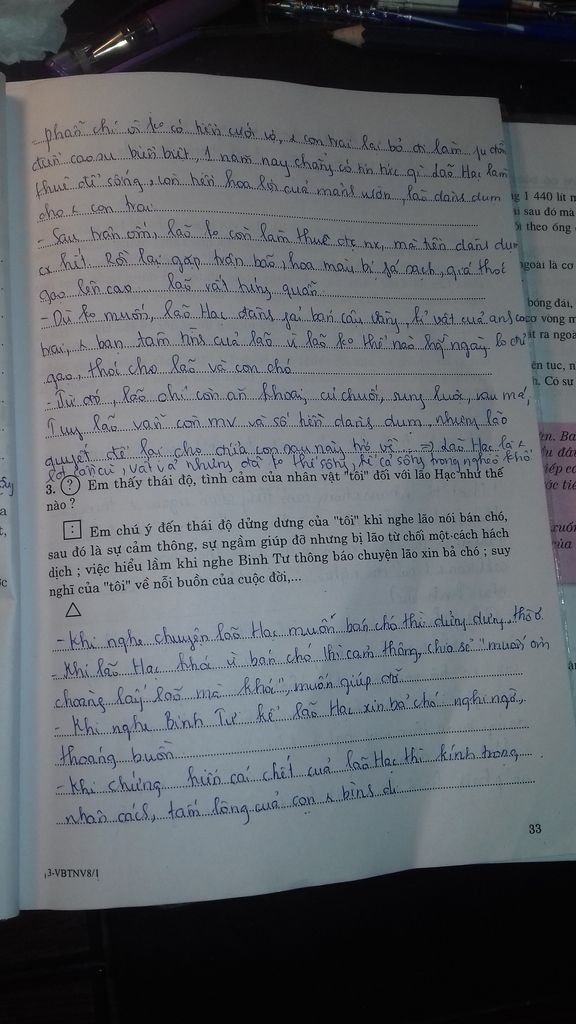 phẫn chí vì ko có tiền cưới vợ, con trai lại bỏ đi làm
đồn cao su biền biệt, 1 năm nay chẳng có tin tức gì lão Hạc làm
thuê để sống, còn tiền hoa lợi của mảnh vườn, lão dành dụm
cho con trai
- Sau trận ốm, lão ko còn làm thuê đc nx, mà tiền dành dụm
cx hết. Rồi lại gặp trận bão, hoa màu bị phá sạch, giá thóc
gạo lên cao lão vất túng quẫn
- Dù ko muốn, lão Hạc đành phải bán cậu Vàng, kỉ vật của anh con
trai, bạn tâm tình của lão vì lão ko thể nào hàng ngày lo chi
gạo, thóc cho lão và con chó
- Từ đó, lão chỉ còn ăn khoai, củ chuối, sung luộc, rau má,
Tuy lão vẫn còn mv và số tiền dành dụm, nhưng lão
quyết để lại cho đứa con sau này trở về ⇒ Lão Hạc là
lợt lam cũ, vất vả nhưng đã ko thể sống, kể cả sống trong nghèo khổ
3. ? Em thấy thái độ, tình cảm của nhân vật "tôi" đối với lão Hạc như thế
nào ?
: Em chú ý đến thái độ dửng dưng của "tôi" khi nghe lão nói bán chó,
sau đó là sự cảm thông, sự ngầm giúp đỡ nhưng bị lão từ chối một cách hách
dịch ; việc hiểu lầm khi nghe Binh Tư thông báo chuyện lão xin bả chó ; suy
nghĩ của "tôi" về nỗi buồn của cuộc đời,...
- Khi nghe chuyện lão Hạc muốn bán chó thì dửng dưng, thờ ơ
- Khi lão Hạc khóc vì bán chó thì cảm thông, chia sẻ "muốn ôm
choàng lấy lão mà khóc", muốn giúp đỡ
- Khi nghe Binh Tư kể lão Hạc xin bả chó nghi ngờ,
thoáng buồn
- Khi chứng kiến cái chết của lão Hạc thì kính trọng
nhân cách, tấm lòng của con bình dị
33
3-VBTNV8/1
1 440 lít n
sau đó mà
theo ống
ngoài là cơ
bóng đái,
co vòng m
ra ngoà
ên tục, n
h. Có sự